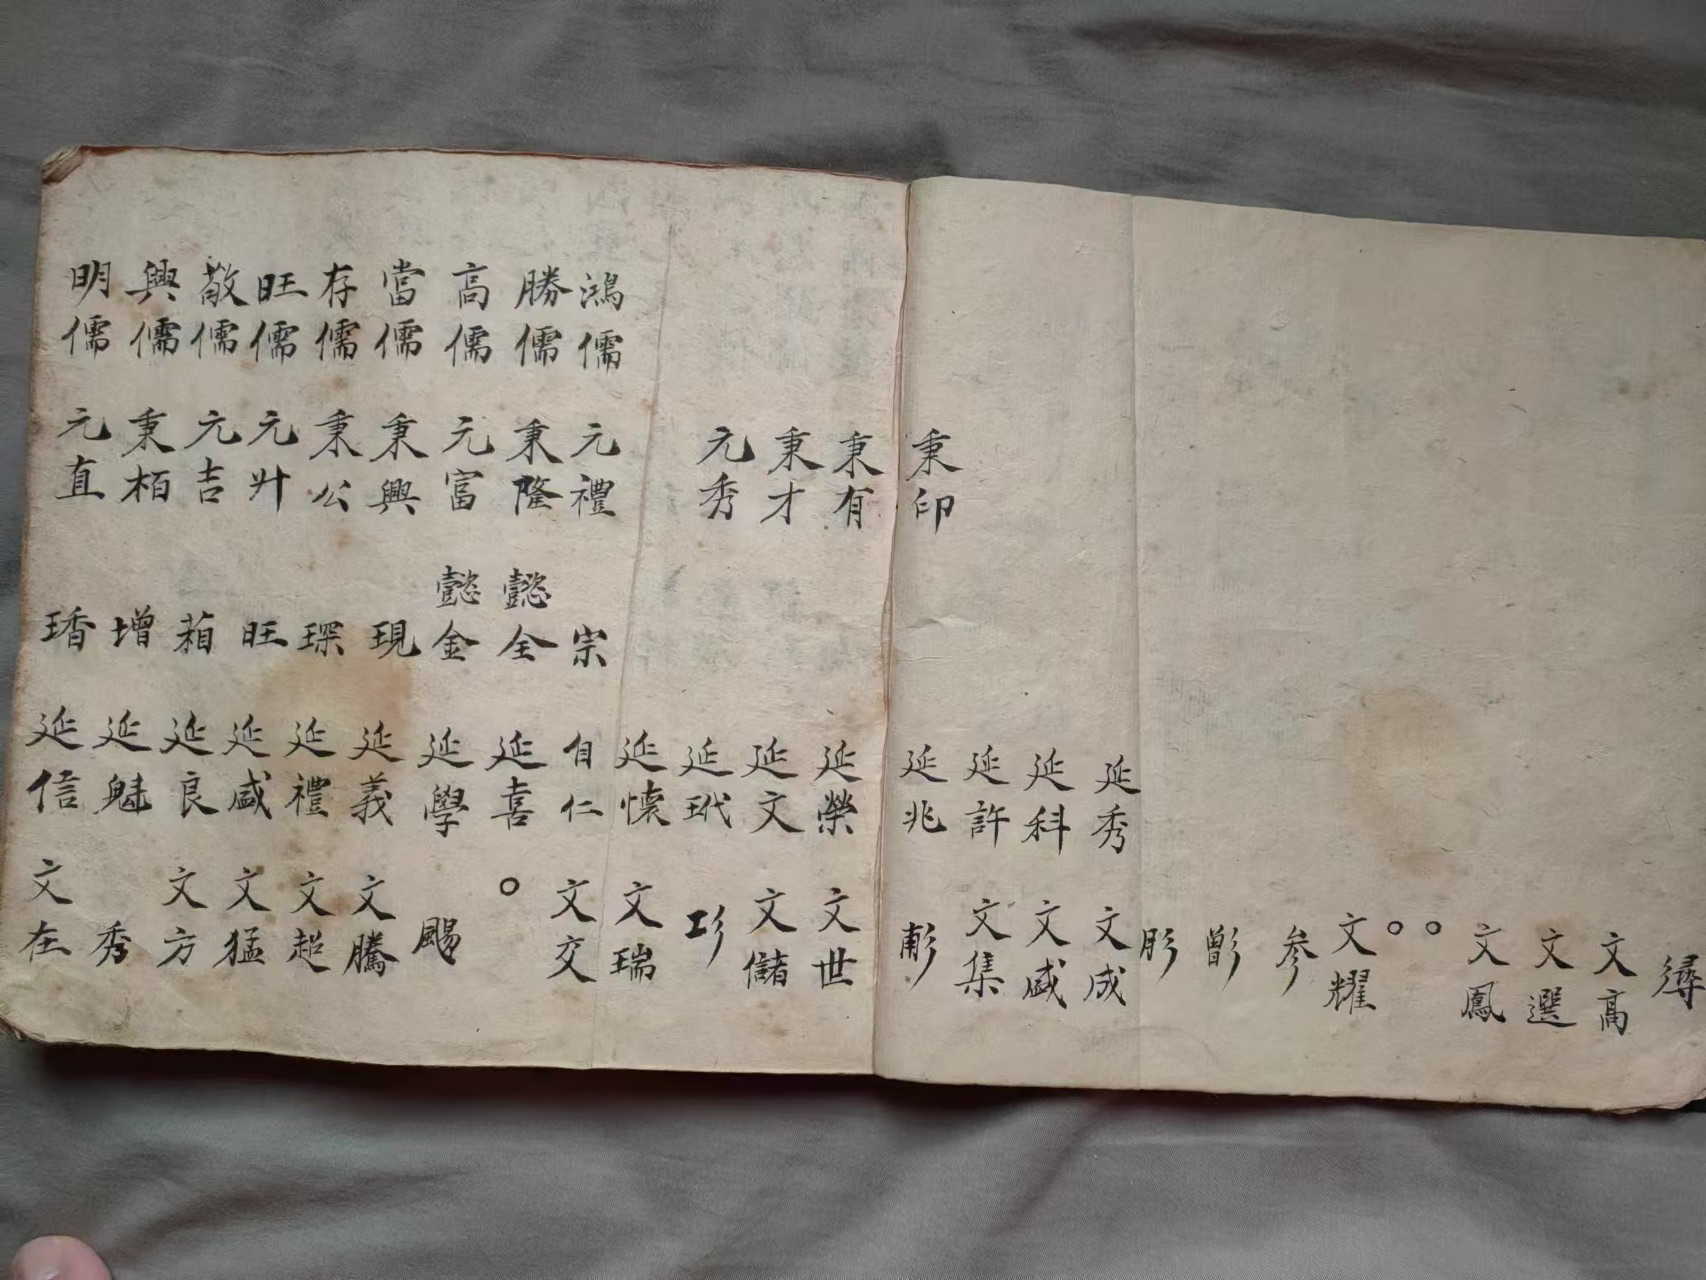 鴻儒 勝儒 高儒 當儒 存儒 旺儒 敬儒 興儒 明儒
秉印 秉有 秉才 元秀 元禮 秉隆 元富 秉興 秉公 元升 元吉 秉栢 元直
宗 懿全 懿金 現 琛 旺 增
延秀 延科 延許 延兆 延榮 延文 延玳 延懷 自仁 延喜 延學 延義 延禮 延咸 延良 延魁 延信
尋 文高 文選 文鳳 ○ ○ 文耀 參 文成 文咸 文集 彭 文世 文儲 文瑞 文交 ○ 文騰 文超 文猛 文方 秀 文在